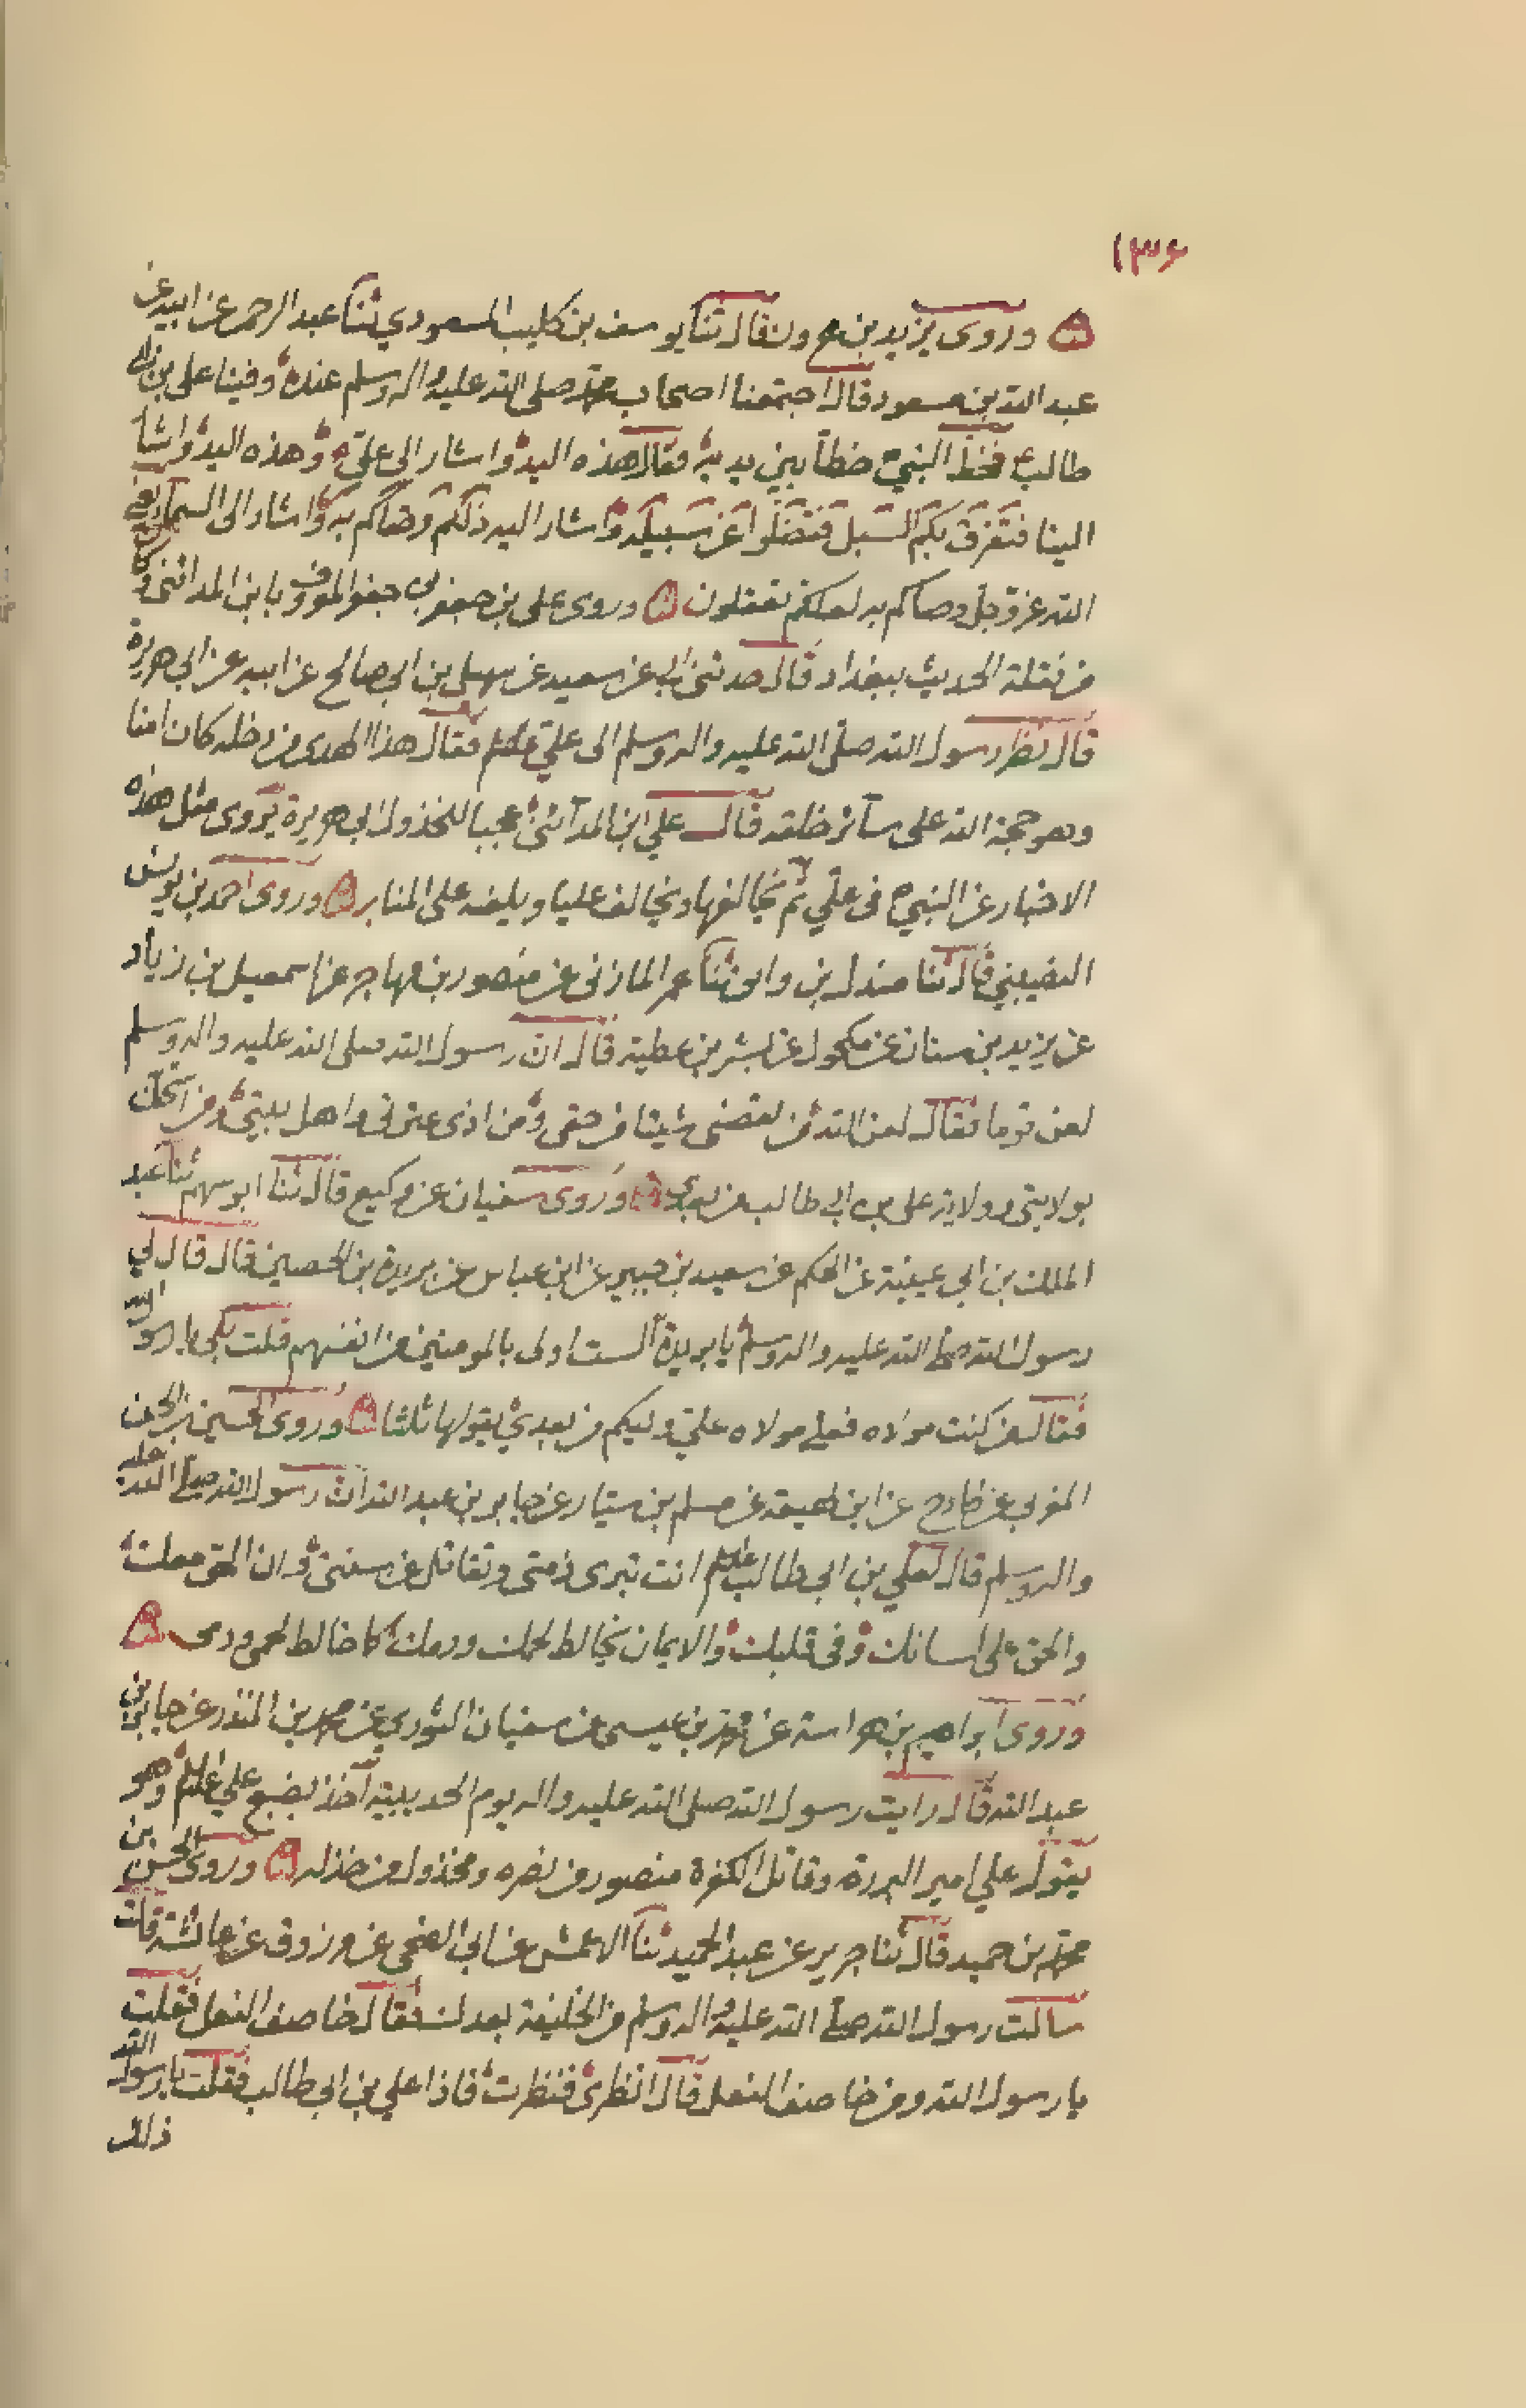 ١٣۶
وروى يزيد بن هرون قال ثنا يوسف بن كليب المسعودي ثنا عبد الرحمن عن ابيه عن
عبد الله بن مسعود قال اجتمعنا اصحاب محمد صلى الله عليه واله وسلم عنده وفينا على بن ابى
طالب فخط النبي خطا بين يديه فقال هذه اليد واشار الى علي وهذه اليد واشار
الينا فتفرق بكم السبل فتضلوا عن سبيله واشار اليه ذلكم وصاكم به واشار الى السمآء
الله عز وجل وصاكم به لعلكم تعقلون وروى على بن جعفر ابى جعفر المعروف بابن المدائنى وكان
من نقلة الحديث ببغداد قال حدثنى ابى عن سعيد عن سهيل بن ابى صالح عن ابيه عن ابى هريرة
قال نظر رسول الله صلى الله عليه واله وسلم الى علي فقال هذا الهدى من دخله كان امنا
وهو حجة الله على سآئر خلقه قال علي ابن المدآئنى عجبا للمخذول ابى هريرة يروى مثل هذه
الاخبار عن النبي فى علي ثم يخالفها ويخالف عليا ويلعنه على المنابر وروى احمد بن يونس
النصيبني قال ثنا مندل بن والى ثنا عمر المازنى عن منصور بن مهاجر عن اسمعيل بن زياد
عن يزيد بن سنان عن مكحول عن بشر بن عطية قال ان رسول الله صلى الله عليه واله وسلم
لعن قوما فقال لعن الله من نقضنى شيئا من حقى ومن اذى عترتى واهل بيتى ومن استخف
بولايتى وولاية على بن ابى طالب من بعدى وروى سفيان عن وكيع قال ثنا ابو سهم ثنا عبد
الملك بن ابى عيينة عن الحكم عن سعيد بن جبير عن ابن عباس عن بريدة بن الحصين قال قال لي
رسول الله صلى الله عليه واله وسلم يا بريدة الست اولى بالمومنين من انفسهم قلت بلى يا رسول الله
فقال من كنت مولاه فعلي مولاه علي وليكم من بعدي يقولها ثلثا وروى الحسين بن الحسن
عن ابن لهيعة عن مسلم بن سيار عن جابر بن عبد الله ان رسول الله صلى الله عليه
واله وسلم قال لعلي بن ابى طالب انت تبرى ذمتى وتقاتل عن سنتى وان الحق معك
والحق على لسانك وفى قلبك والايمان يخالط لحمك ودمك كما خالط لحمى ودمى
وروى ابراهيم بن هراسة عن محمد بن عيسى عن سفيان الثوري عن محمد بن المنذر عن جابر بن
عبد الله قال رايت رسول الله صلى الله عليه واله يوم الحديبية آخذ بضبع علي وهو
يقول علي امير البررة وقاتل الكفرة منصور من نصره ومخذول من خذله وروى الحسن بن
محمد بن حميد قال ثنا جرير عن عبد الحميد ثنا الاعمش عن ابى الضحى عن مرزوق عن عائشة قالت
سالت رسول الله صلى الله عليه واله وسلم من الخليفة بعدك فقال خاصف النعل فقلت
يا رسول الله ومن خاصف النعل قال انظرى فنظرت فاذا علي بن ابى طالب فقلت يا رسول الله
ذلك